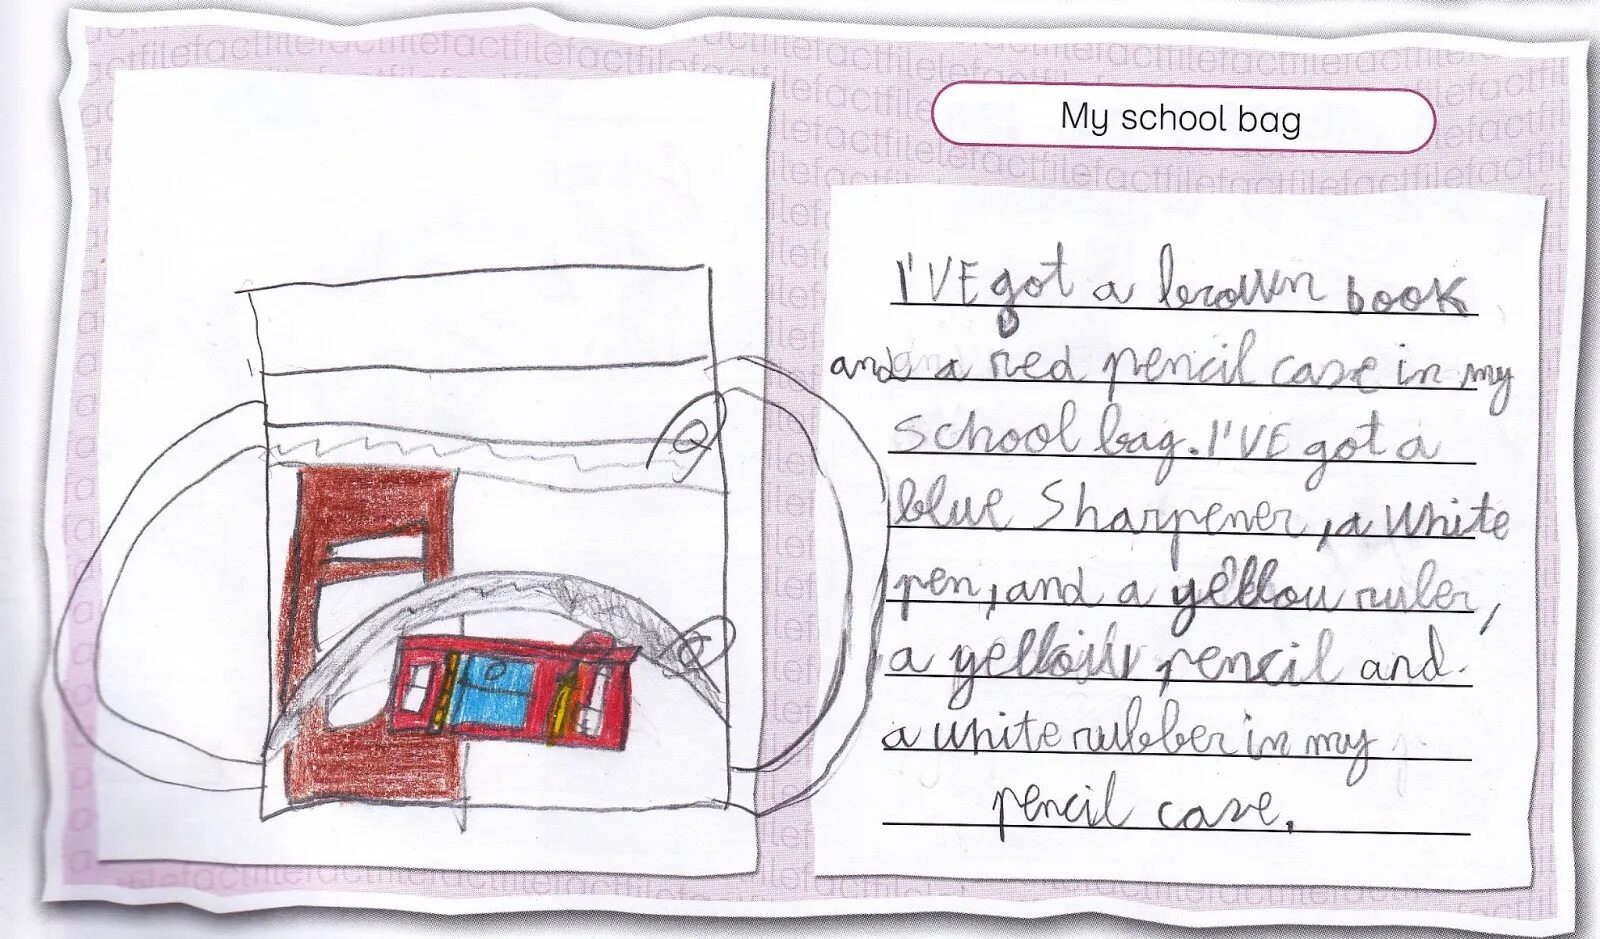 My school bag
I'VE got a brown book
and a red pencil case in my
school bag. I'VE got a
blue sharpener, a white
pen, and a yellow ruler,
a yellow pencil and
a white rubber in my
pencil case.